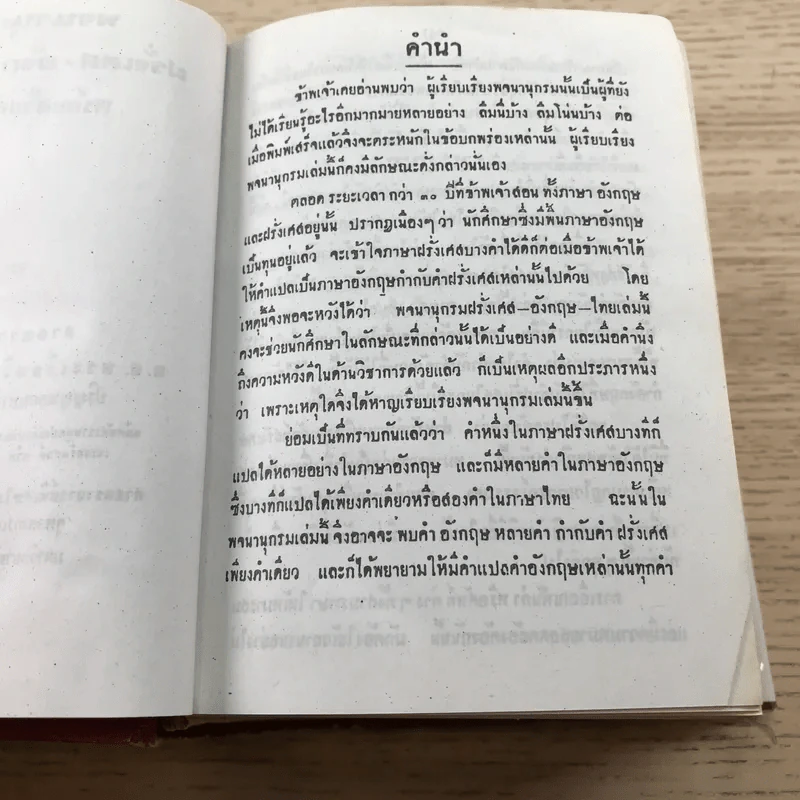 คำนำ
ข้าพเจ้าเคยอ่านพบว่า ผู้เรียบเรียงพจนานุกรมนั้นเป็นผู้ที่ยัง
ไม่ได้เรียนรู้อะไรอีกมากมายหลายอย่าง ลืมนี่บ้าง ลืมโน่นบ้าง ต่อ
เมื่อพิมพ์เสร็จแล้วจึงจะตระหนักในข้อบกพร่องเหล่านั้น ผู้เรียบเรียง
พจนานุกรมเล่มนี้ก็คงมีลักษณะดั่งกล่าวนั่นเอง
ตลอด ระยะเวลา กว่า ๓๐ ปีที่ข้าพเจ้าสอน ทั้งภาษา อังกฤษ
และฝรั่งเศสอยู่นั้น ปรากฏเนืองๆ ว่า นักศึกษาซึ่งมีพื้นภาษาอังกฤษ
เป็นทุนอยู่แล้ว จะเข้าใจภาษาฝรั่งเศสบางคำได้ดีก็ต่อเมื่อข้าพเจ้าได้
ให้คำแปลเป็นภาษาอังกฤษกำกับคำฝรั่งเศสเหล่านั้นไปด้วย โดย
เหตุนี้จึงพอจะหวังได้ว่า พจนานุกรมฝรั่งเศส—อังกฤษ—ไทยเล่มนี้
คงจะช่วยนักศึกษาในลักษณะที่กล่าวนั้นได้เป็นอย่างดี และเมื่อคำนึง
ถึงความหวังดีในด้านวิชาการด้วยแล้ว ก็เป็นเหตุผลอีกประการหนึ่ง
ว่า เพราะเหตุใดจึงได้หาญเรียบเรียงพจนานุกรมเล่มนี้ขึ้น
ย่อมเป็นที่ทราบกันแล้วว่า คำหนึ่งในภาษาฝรั่งเศสบางทีก็
แปลได้หลายอย่างในภาษาอังกฤษ และก็มีหลายคำในภาษาอังกฤษ
ซึ่งบางทีก็แปลได้เพียงคำเดียวหรือสองคำในภาษาไทย ฉะนั้นใน
พจนานุกรมเล่มนี้ จึงอาจจะ พบคำ อังกฤษ หลายคำ กำกับคำ ฝรั่งเศส
เพียงคำเดียว และก็ได้พยายามให้มีคำแปลคำอังกฤษเหล่านั้นทุกคำ